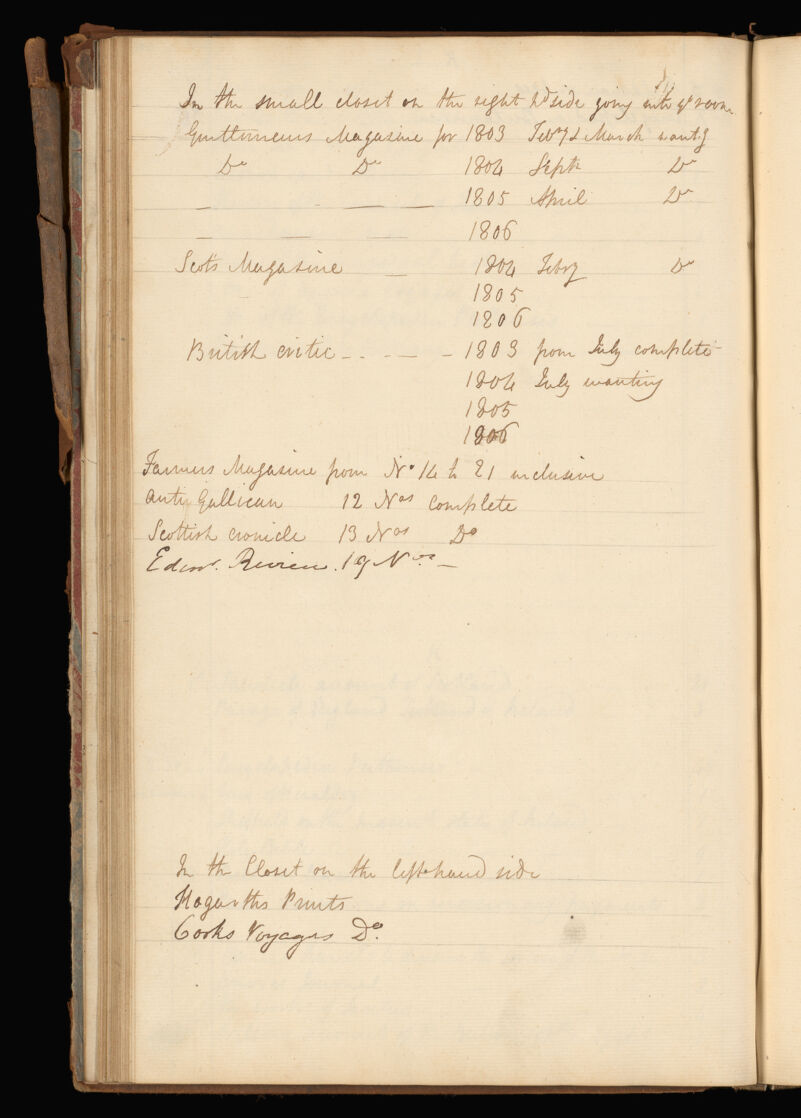 In the small closet on the right hd side going into ye room
Gentlemens Magazine for 1803 Feby & March wantg
Do Do 1804 Septr Do
— — — 1805 April Do
— — — 1806
Scots Magazine — 1804 Feby Do
1805
1806
British critic - . - — - 1803 from July complete
1804 July wanting
1805
1806
Farmers Magazine from No 14 to 21 inclusive
Anti Gallican 12 Nos Complete
Scottish cronicle 13 Nos Do
Edinr. Review. 19 Nos —
In the Closet on the left hand side
Hogarths Prints
Cooks Voyages Do.